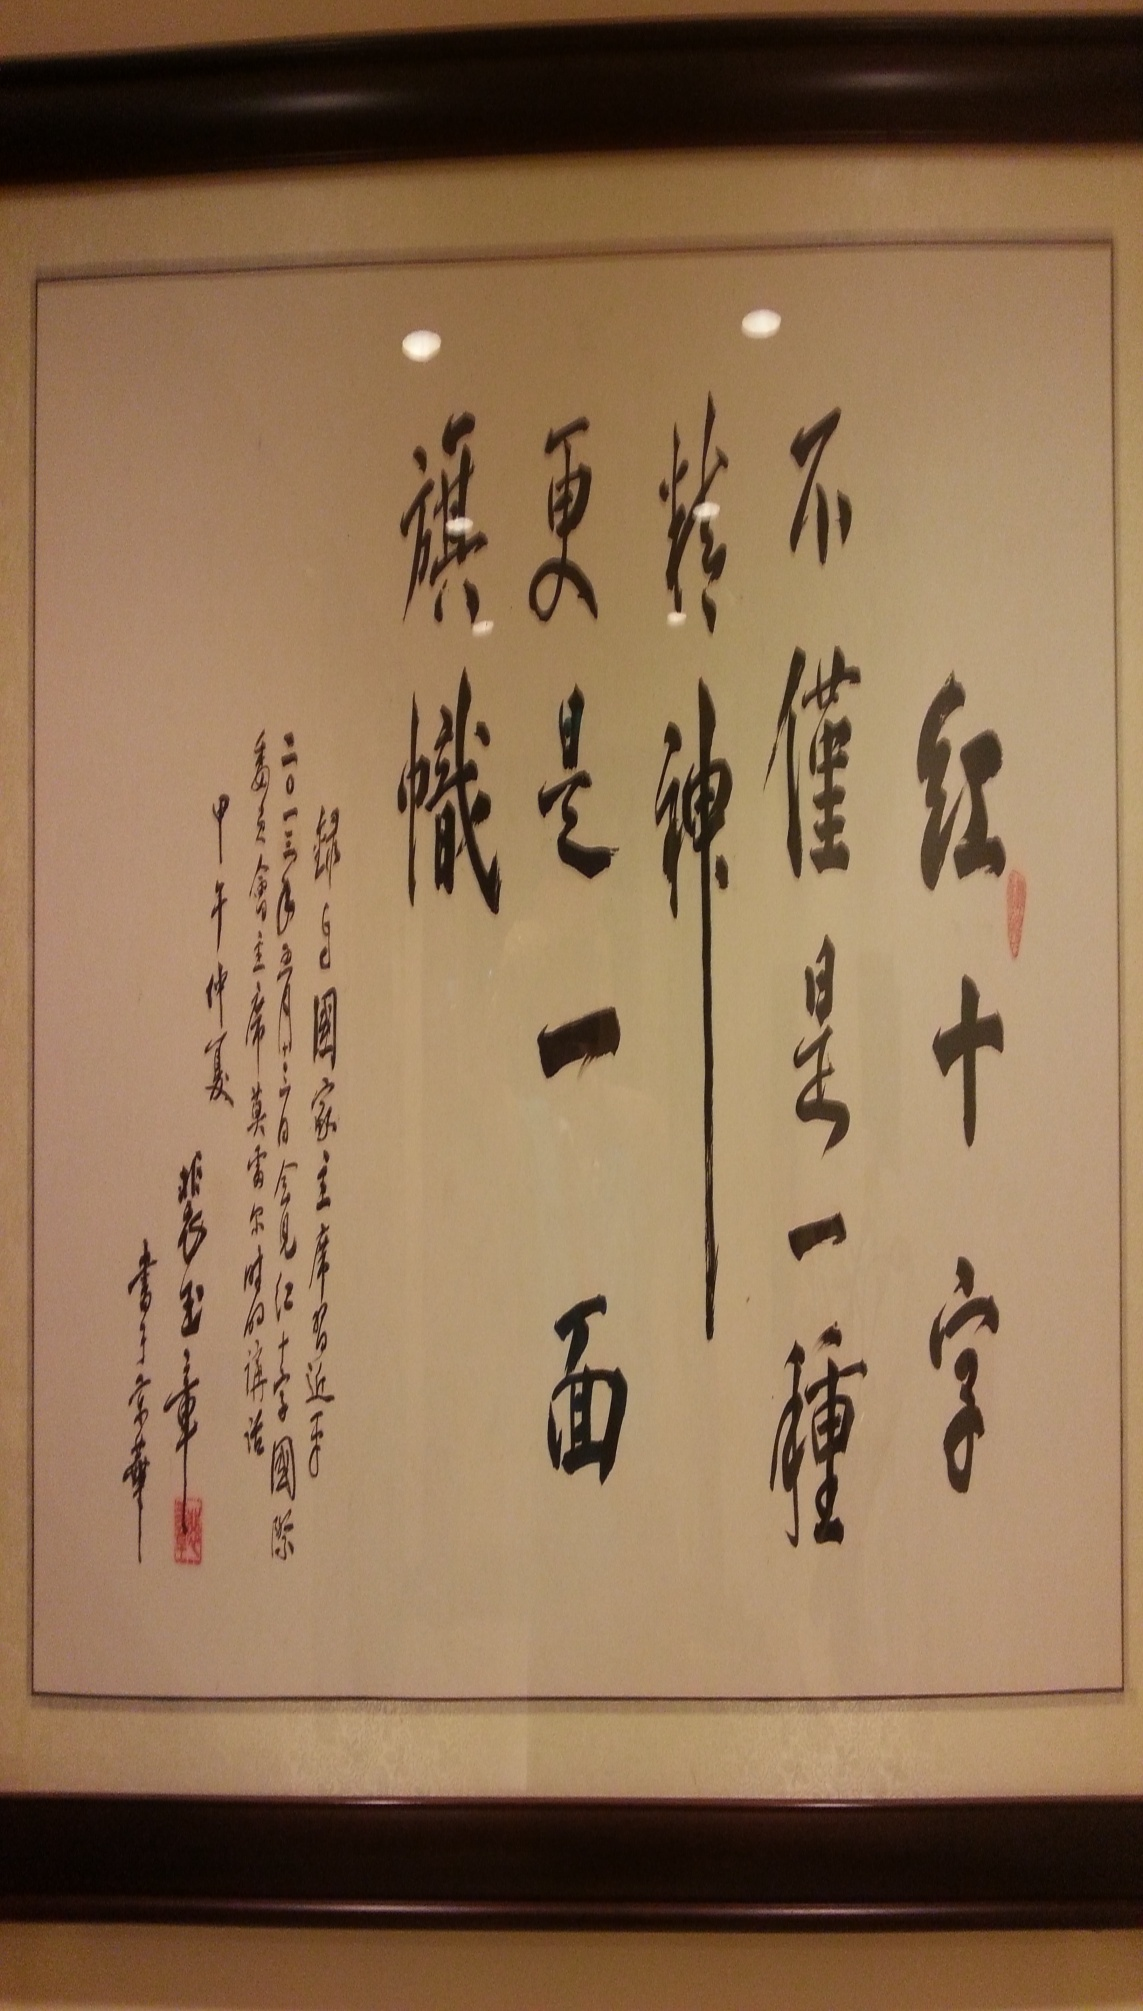 红十字
不僅是一種
精神
更是一面
旗幟
錄自國家主席習近平
二〇一三年五月十三日会見红十字國際
委员會主席莫雷尔時的講话
甲午仲夏
裴玉章
書于京華